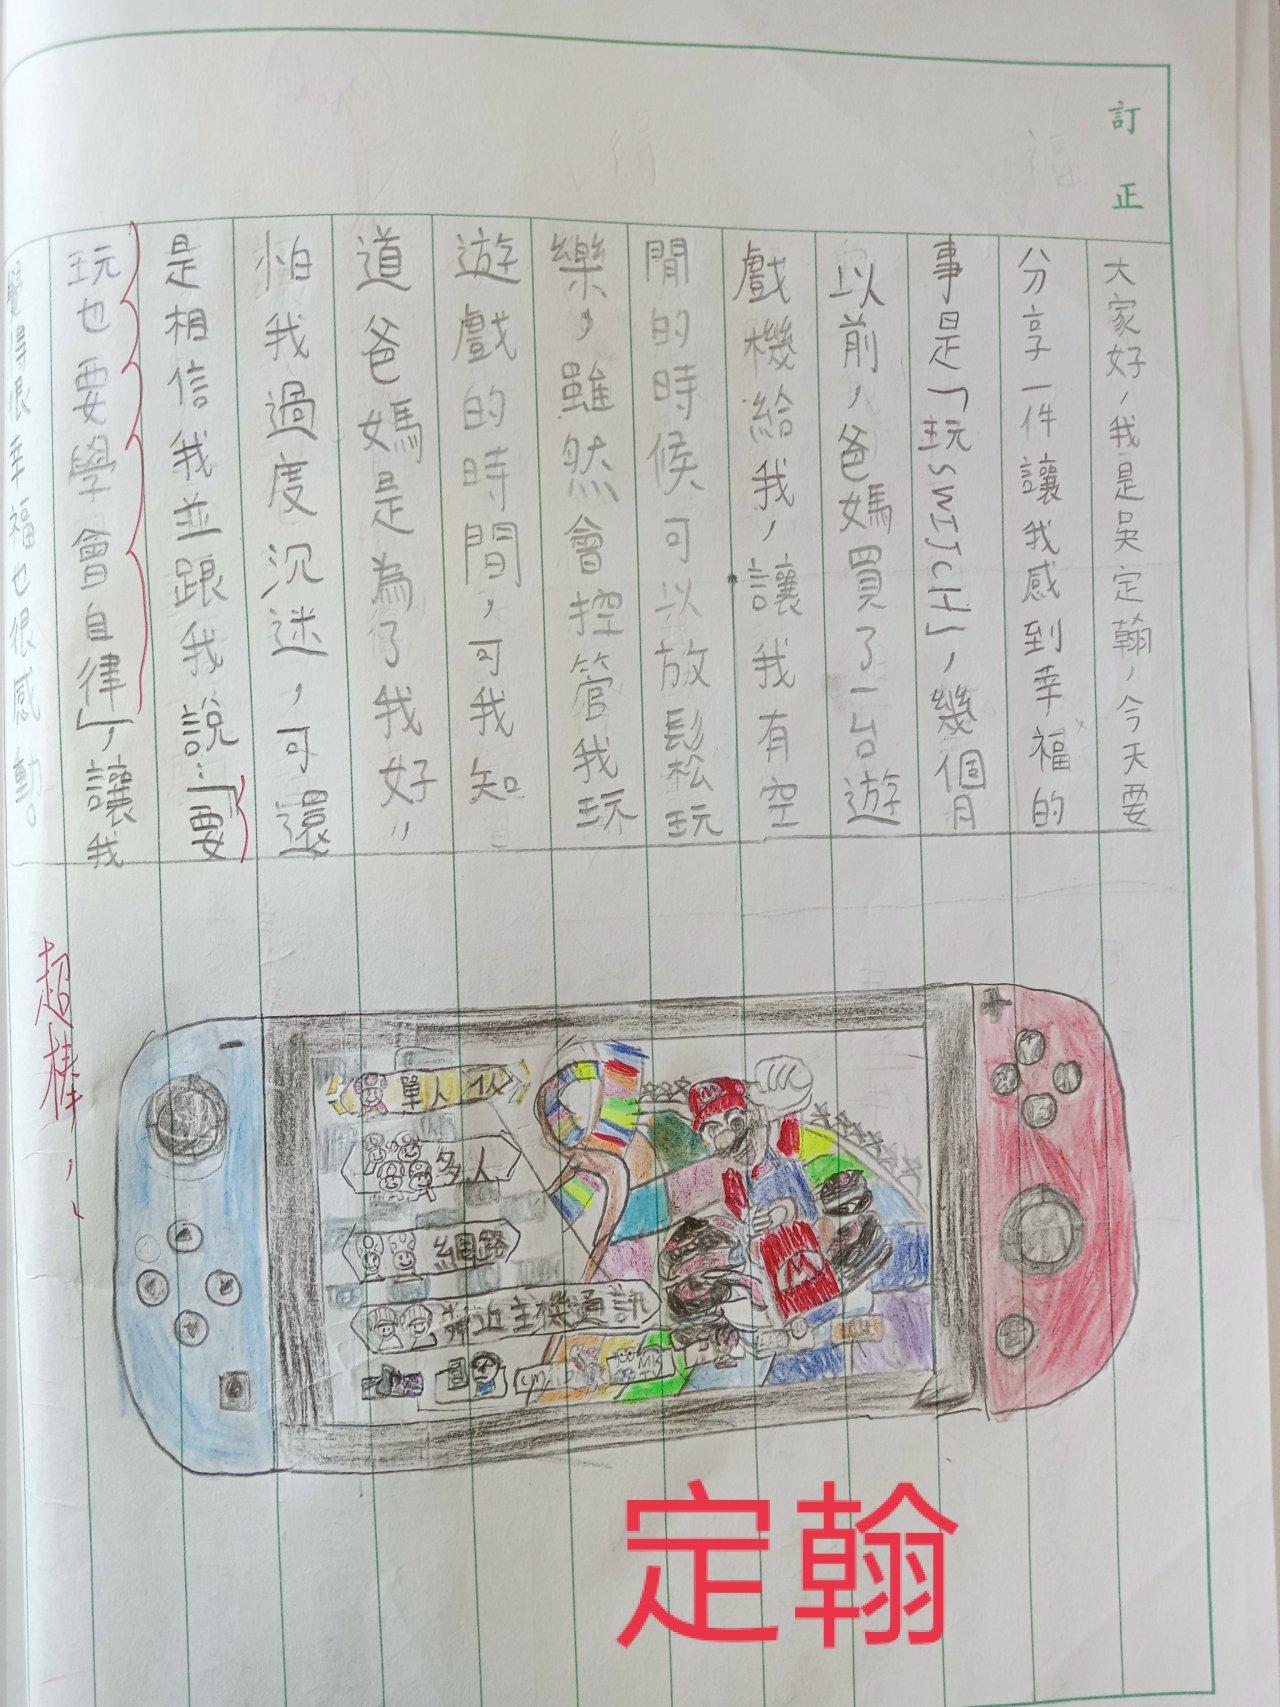 訂正
大家好，我是吳定翰，今天要
分享一件讓我感到幸福的
事是「玩SWITCH」，幾個月
以前，爸媽買了一台遊
戲機給我，讓我有空
閒的時候可以放鬆玩
樂，雖然會控管我玩
遊戲的時間，可我知
道爸媽是為了我好，
怕我過度沉迷，可還
是相信我並跟我說：「要
玩也要學會自律」，讓我
覺得很幸福也很感動。
超棒
單人
多人
網路
附近主機通訊
M
M
MK
定翰